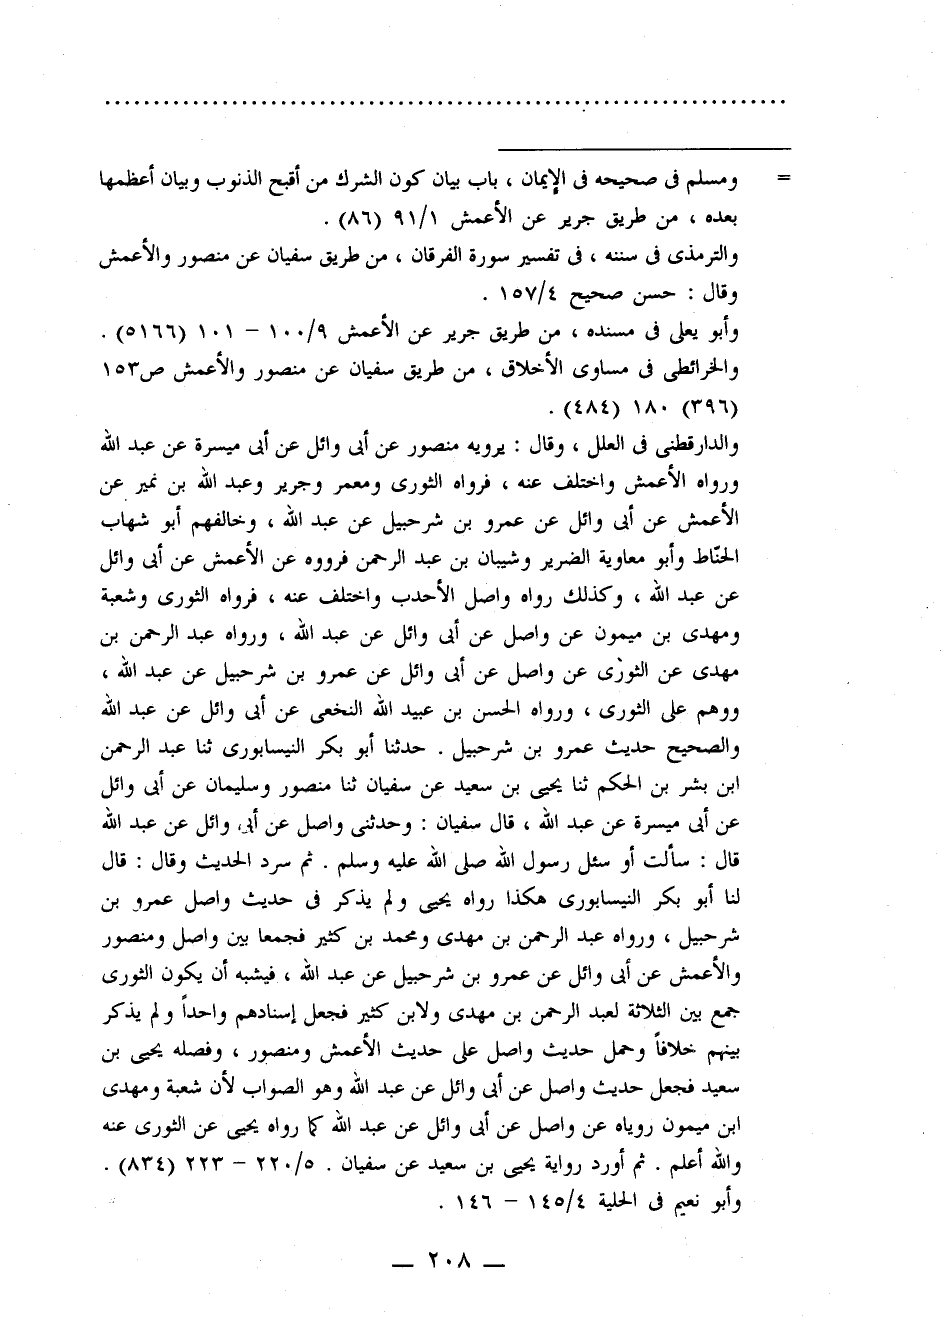 = ومسلم فى صحيحه فى الإيمان ، باب بيان كون الشرك من أقبح الذنوب وبيان أعظمها
بعده ، من طريق جرير عن الأعمش ٩١/١ (٨٦) .
والترمذى فى سننه ، فى تفسير سورة الفرقان ، من طريق سفيان عن منصور والأعمش
وقال : حسن صحيح ١٥٧/٤ .
وأبو يعلى فى مسنده ، من طريق جرير عن الأعمش ١٠٠/٩ – ١٠١ (٥١٦٦) .
والخرائطى فى مساوى الأخلاق ، من طريق سفيان عن منصور والأعمش ص١٥٣
(٣٩٦) ١٨٠ (٤٨٤) .
والدارقطنى فى العلل ، وقال : يرويه منصور عن أبى وائل عن أبى ميسرة عن عبد الله
ورواه الأعمش واختلف عنه ، فرواه الثورى ومعمر وجرير وعبد الله بن نمير عن
الأعمش عن أبى وائل عن عمرو بن شرحبيل عن عبد الله ، وخالفهم أبو شهاب
الحنّاط وأبو معاوية الضرير وشيبان بن عبد الرحمن فرووه عن الأعمش عن أبى وائل
عن عبد الله ، وكذلك رواه واصل الأحدب واختلف عنه ، فرواه الثورى وشعبة
ومهدى بن ميمون عن واصل عن أبى وائل عن عبد الله ، ورواه عبد الرحمن بن
مهدى عن الثورى عن واصل عن أبى وائل عن عمرو بن شرحبيل عن عبد الله ،
ووهم على الثورى ، ورواه الحسن بن عبيد الله النخعى عن أبى وائل عن عبد الله
والصحيح حديث عمرو بن شرحبيل . حدثنا أبو بكر النيسابورى ثنا عبد الرحمن
ابن بشر بن الحكم ثنا يحيى بن سعيد عن سفيان ثنا منصور وسليمان عن أبى وائل
عن أبى ميسرة عن عبد الله ، قال سفيان : وحدثنى واصل عن أبى وائل عن عبد الله
قال : سألت أو سئل رسول الله صلى الله عليه وسلم . ثم سرد الحديث وقال : قال
لنا أبو بكر النيسابورى هكذا رواه يحيى ولم يذكر فى حديث واصل عمرو بن
شرحبيل ، ورواه عبد الرحمن بن مهدى ومحمد بن كثير فجمعا بين واصل ومنصور
والأعمش عن أبى وائل عن عمرو بن شرحبيل عن عبد الله ، فيشبه أن يكون الثورى
جمع بين الثلاثة لعبد الرحمن بن مهدى ولابن كثير فجعل إسنادهم واحداً ولم يذكر
بينهم خلافاً وحمل حديث واصل على حديث الأعمش ومنصور ، وفصله يحيى بن
سعيد فجعل حديث واصل عن أبى وائل عن عبد الله وهو الصواب لأن شعبة ومهدى
ابن ميمون روياه عن واصل عن أبى وائل عن عبد الله كما رواه يحيى عن الثورى عنه
والله أعلم . ثم أورد رواية يحيى بن سعيد عن سفيان . ٢٢٠/٥ – ٢٢٣ (٨٣٤) .
وأبو نعيم فى الحلية ١٤٥/٤ – ١٤٦ .
— ٢٠٨ —